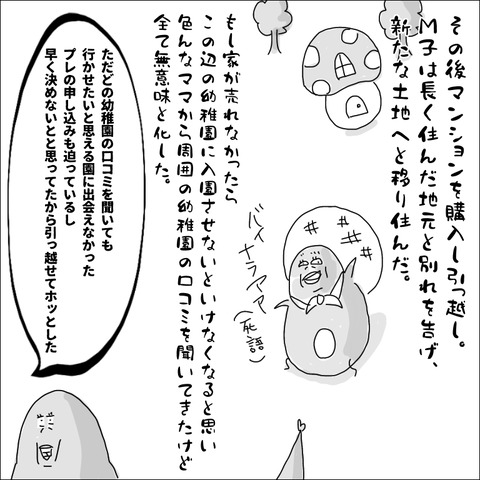 その後マンションを購入し引っ越し。
M子は長く住んだ地元と別れを告げ、
新たな土地へと移り住んだ。
バイ
ナラアアア
(死語)
もし家が売れなかったら
この辺の幼稚園に入園させないといけなくなると思い
色んなママから周囲の幼稚園の口コミを聞いてきたけど
全て無意味と化した。
ただどの幼稚園の口コミを聞いても
行かせたいと思える園に出会えなかった
プレの申し込みも迫っているし
早く決めないとと思ってたから引っ越せてホッとした